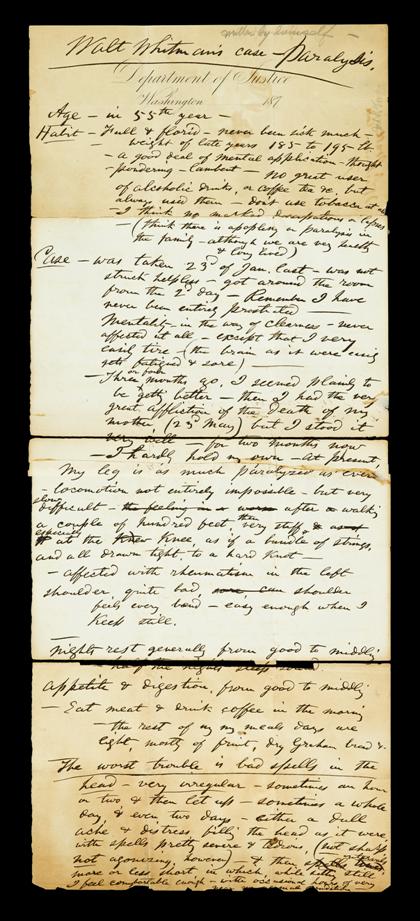 written by himself —
Walt Whitman's case — Paralysis.
Department of Justice
Washington 187
Age — in 55th year —
Habit — Full & florid — never been sick much —
— weight of late years 185 to 195 lb
— a good deal of mental application — thought
— pondering — — No great user
of alcoholic drinks, or coffee tea &c, but
always used them — don't use tobacco at all
— I think no marked or
— (think there is apoplexy or paralysis in
the family — although we are very
& long lived)
Case — was taken 23d of Jan. last — was not
struck helpless — got around the room
from the 2d day — Remember I have
never been entirely prostrated —
Mentality — in the way of clearness — never
affected at all — except that I very
easily tire — (the brain as it were easily
gets fatigued & sore) —
or four
— Three months go, I seemed plainly to
be getting better — then I had the very
great affliction of the death of my
mother, (23d May) but I stood it
very well — for two months now
— I hardly hold my own — At present,
My leg is as much paralyzed as ever
— locomotion not entirely impossible — but very
slow
difficult — the feeling in a worn after a walking
a couple of hundred feet, then very stiff, &
especially
at the knee, as if a bundle of strings,
and all drawn tight to a hard knot —
— affected with rheumatism in the left
shoulder, quite bad, shoulder
feels every bend — easy enough when I
keep still.
— Nights rest generally from good to middling
— half the nights sleep sound.
Appetite & digestion, from good to middling
— Eat meat & drink coffee in the morning
— the rest of my meals days are
light, mostly of fruit, dry Graham bread &c
The worst trouble is bad spells in the
head — very irregular — sometimes an hour
or two & then let up — sometimes a whole
day, & even two days — either a dull
ache & distress, filling the head as it were,
with spells pretty severe & tedious, (not sharp
not agonizing, however) — & then
more or less short in which, while sitting still
I feel comfortable enough — with occasional hours of very